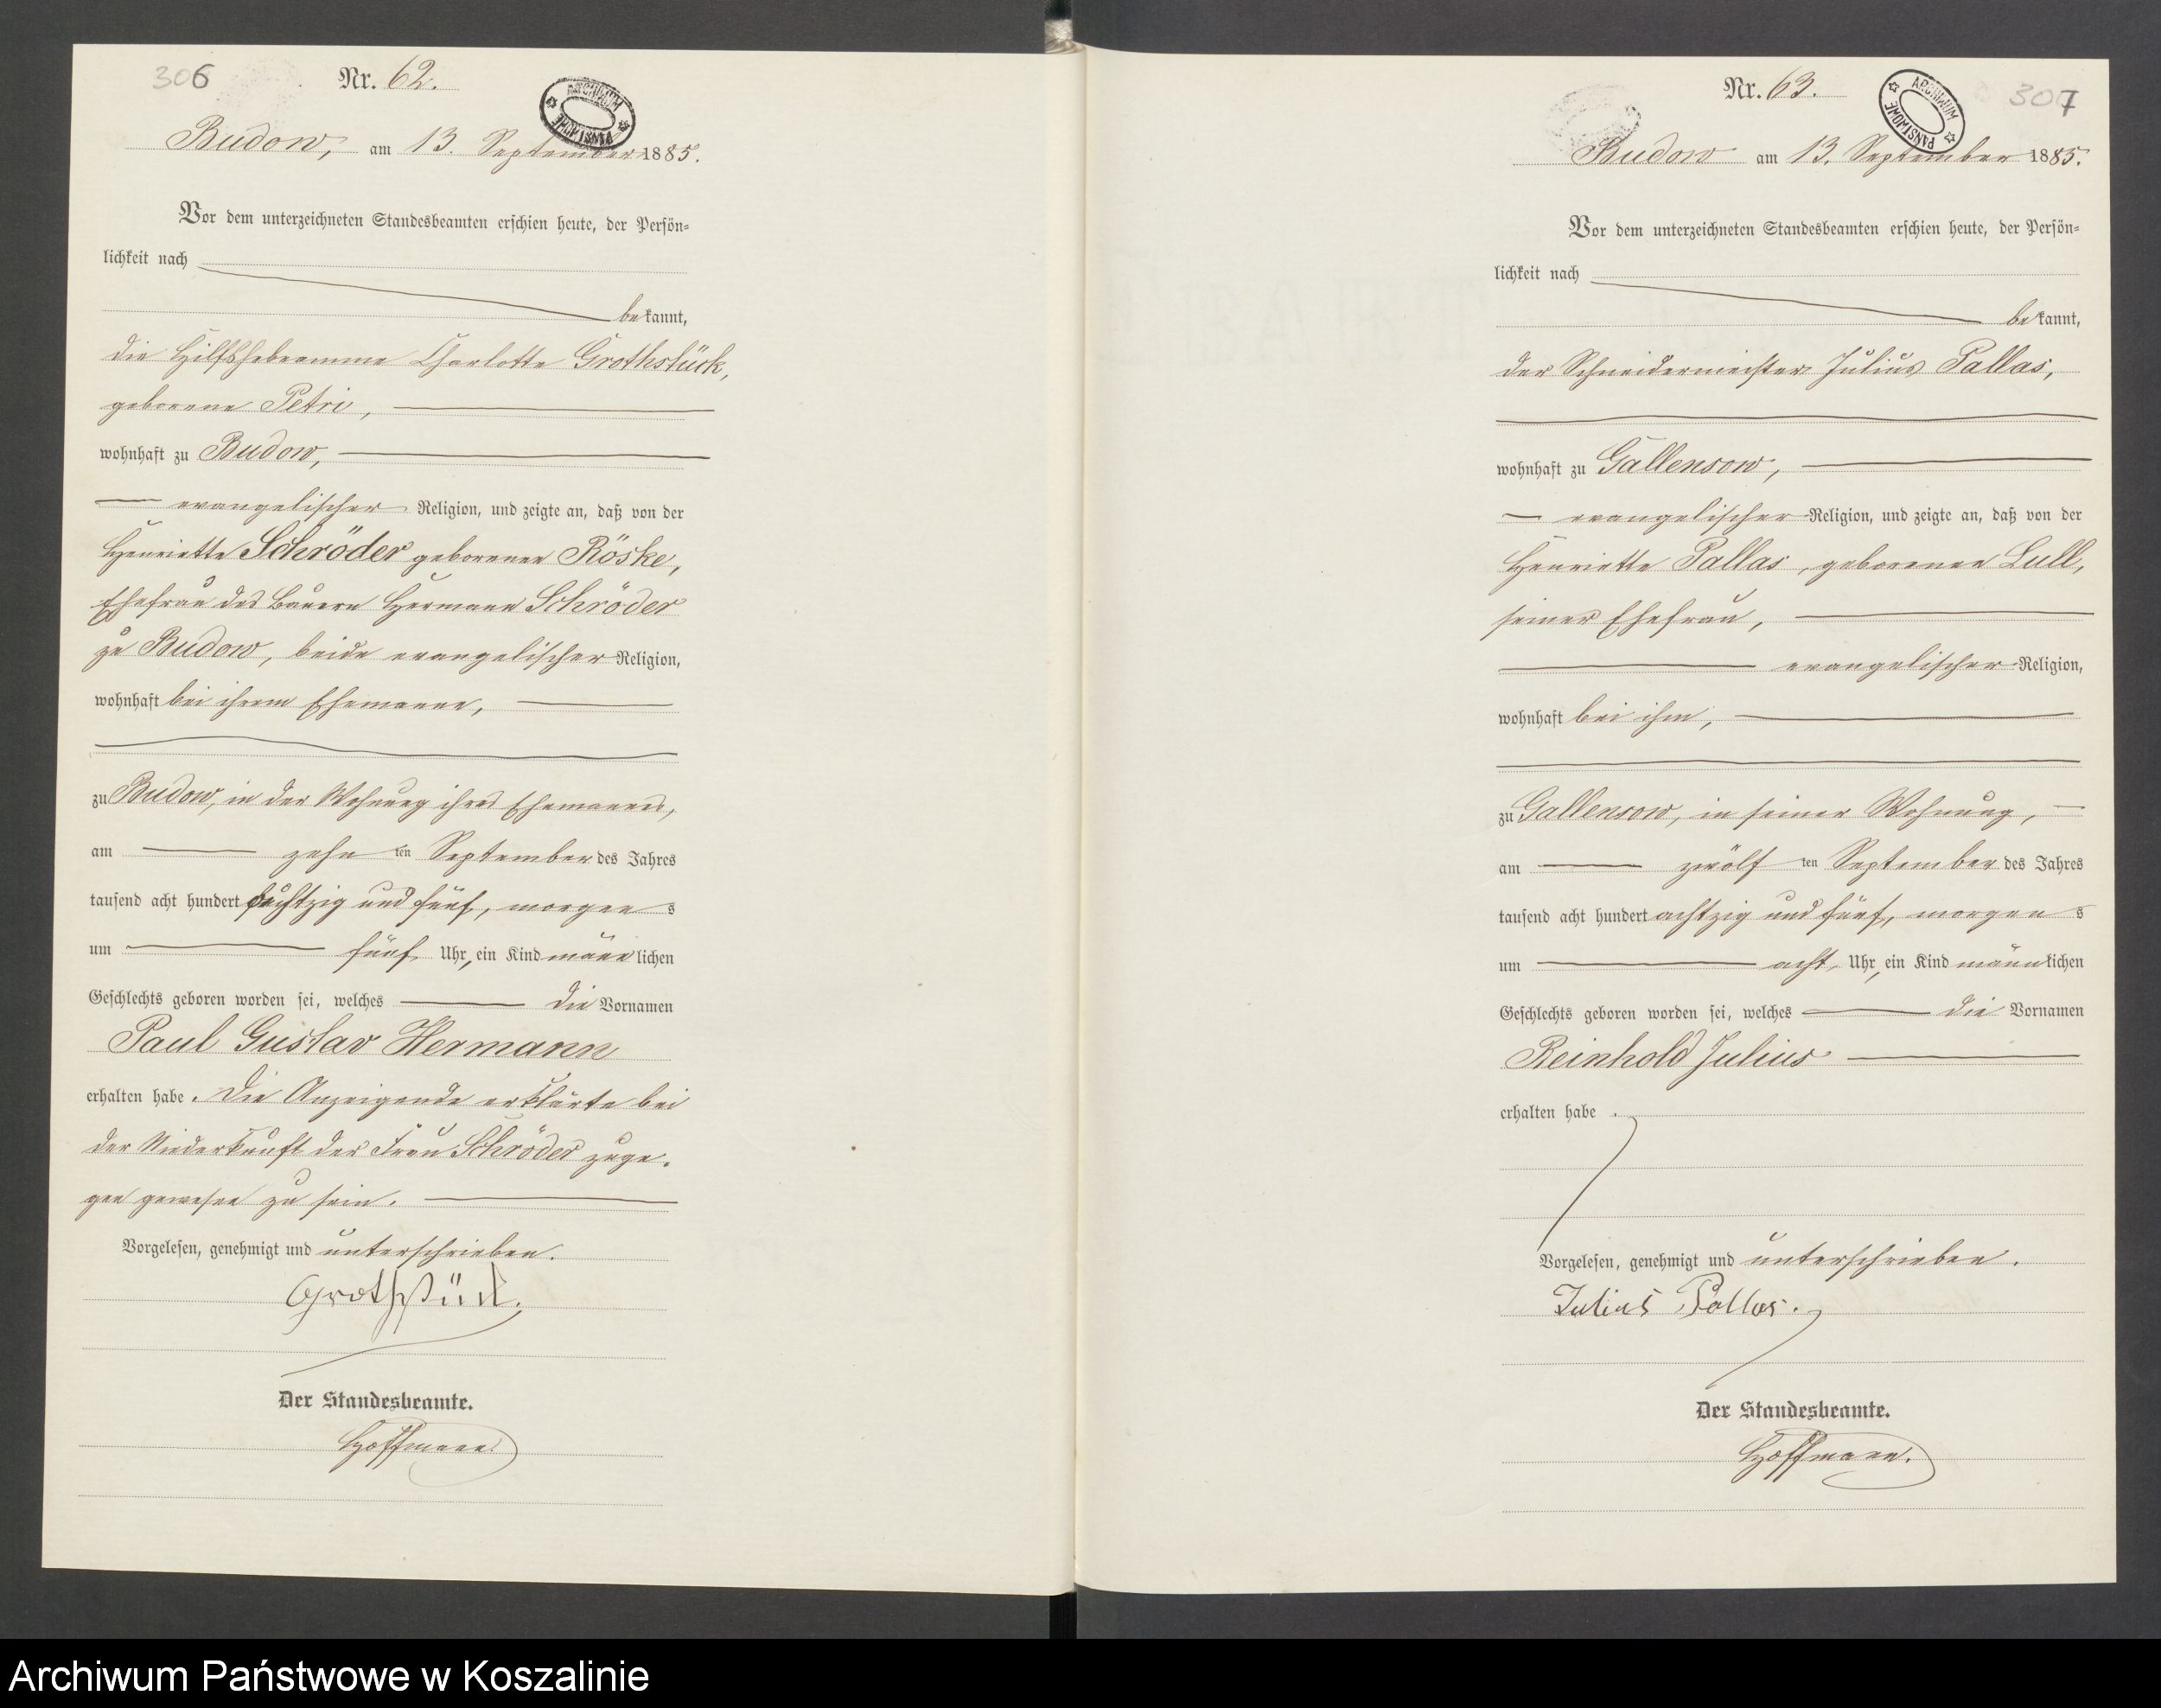 306
Nr. 62.
ARCHIWUM PAŃSTWOWE
Budow, am 13. September 1885.
Vor dem unterzeichneten Standesbeamten erschien heute, der Persön=
lichkeit nach
bekannt,
die Hilfshebeamme Charlotte Grothstück,
geborene Petri,
wohnhaft zu Budow,
evangelischer Religion, und zeigte an, daß von der
Henriette Schröder geborenen Röske,
Ehefrau des Bauern Hermann Schröder
zu Budow, beide evangelischer Religion,
wohnhaft bei ihrem Ehemanne,
zu Budow, in der Wohnung ihres Ehemannes,
am zehn ten September des Jahres
tausend acht hundert achtzig und fünf, morgens
um fünf Uhr, ein Kind männlichen
Geschlechts geboren worden sei, welches die Vornamen
Paul Gustav Hermann
erhalten habe. Die Anzeigende erklärte bei
der Niederkunft der Frau Schröder zuge-
gen gewesen zu sein.
Vorgelesen, genehmigt und unterschrieben.
Grothstück.
Der Standesbeamte.
Hoffmann.
307
Nr. 63.
ARCHIWUM PAŃSTWOWE
Budow am 13. September 1885.
Vor dem unterzeichneten Standesbeamten erschien heute, der Persön=
lichkeit nach
bekannt,
der Schneidermeister Julius Pallas,
wohnhaft zu Gallensow,
evangelischer Religion, und zeigte an, daß von der
Henriette Pallas, geborenen Lull,
seiner Ehefrau,
evangelischer Religion,
wohnhaft bei ihm,
zu Gallensow, in seiner Wohnung,
am zwölf ten September des Jahres
tausend acht hundert achtzig und fünf, morgens
um acht Uhr, ein Kind männlichen
Geschlechts geboren worden sei, welches die Vornamen
Reinhold Julius
erhalten habe.
Vorgelesen, genehmigt und unterschrieben.
Julius Pallas.
Der Standesbeamte.
Hoffmann.
Archiwum Państwowe w Koszalinie